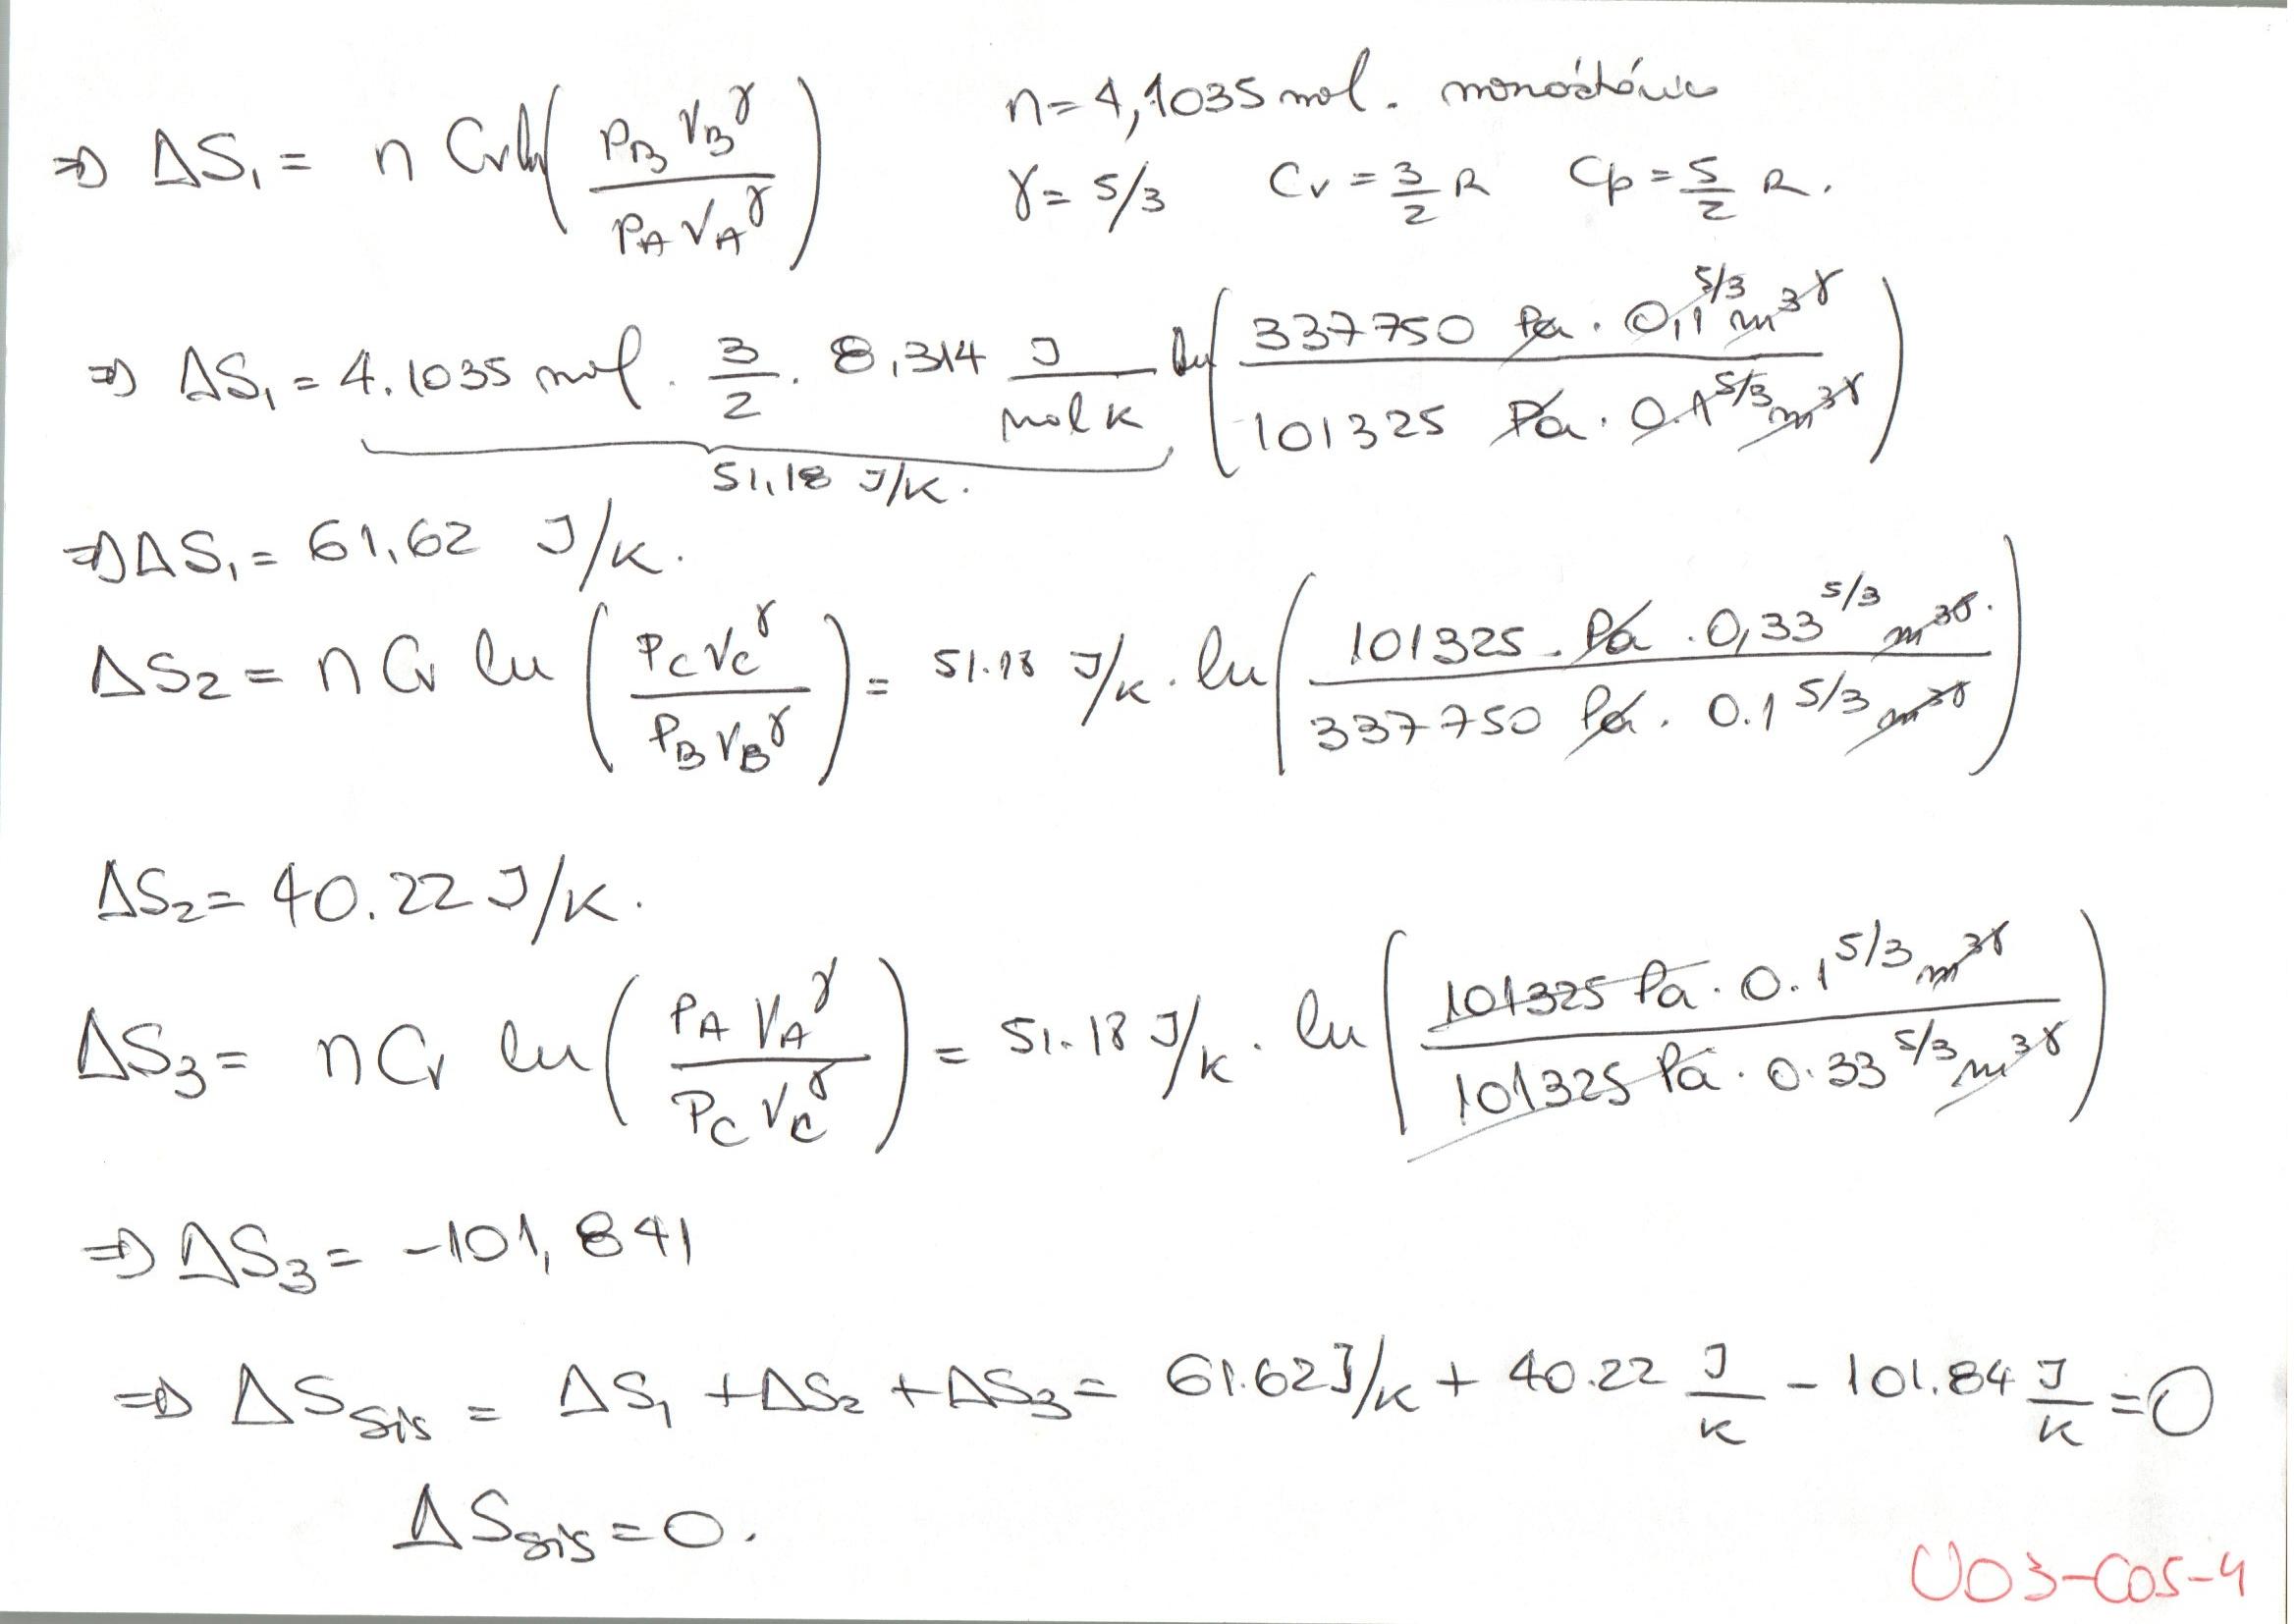 ⇒ ΔS₁ = n Cv ln( P_B V_B^γ / P_A V_A^γ )
n = 4,1035 mol. monoátomico
γ = 5/3 Cv = 3/2 R Cp = 5/2 R.
⇒ ΔS₁ = 4.1035 mol · 3/2 · 8,314 J/mol K ln( 337750 Pa · 0,1^5/3 m^3γ / 101325 Pa · 0.1^5/3 m^3γ )
51,18 J/K.
⇒ ΔS₁ = 61,62 J/K.
ΔS₂ = n Cv ln( P_C V_C^γ / P_B V_B^γ ) = 51.18 J/K · ln( 101325 · Pa · 0,33^5/3 m^3γ · / 337750 Pa · 0.1^5/3 m^3γ )
ΔS₂ = 40.22 J/K.
ΔS₃ = n Cv ln( P_A V_A^γ / P_C V_C^γ ) = 51.18 J/K · ln( 101325 Pa · 0.1^5/3 m^3γ / 101325 Pa · 0.33^5/3 m^3γ )
⇒ ΔS₃ = -101,841
⇒ ΔS_sis = ΔS₁ + ΔS₂ + ΔS₃ = 61.62 J/K + 40.22 J/K - 101.84 J/K = 0
ΔS_sis = 0.
UD3-C05-4